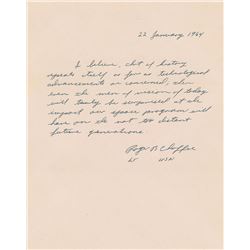 22 January 1964
I believe, that if history
repeats itself as far as technological
advancements are concerned, then
even the men of vision of today
will surely be surprised at the
impact our space program will
have on the not too distant
future generations.
Roger B Chaffee
Lt USN